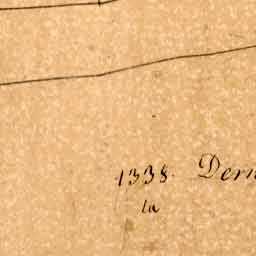 1338. Dern
la